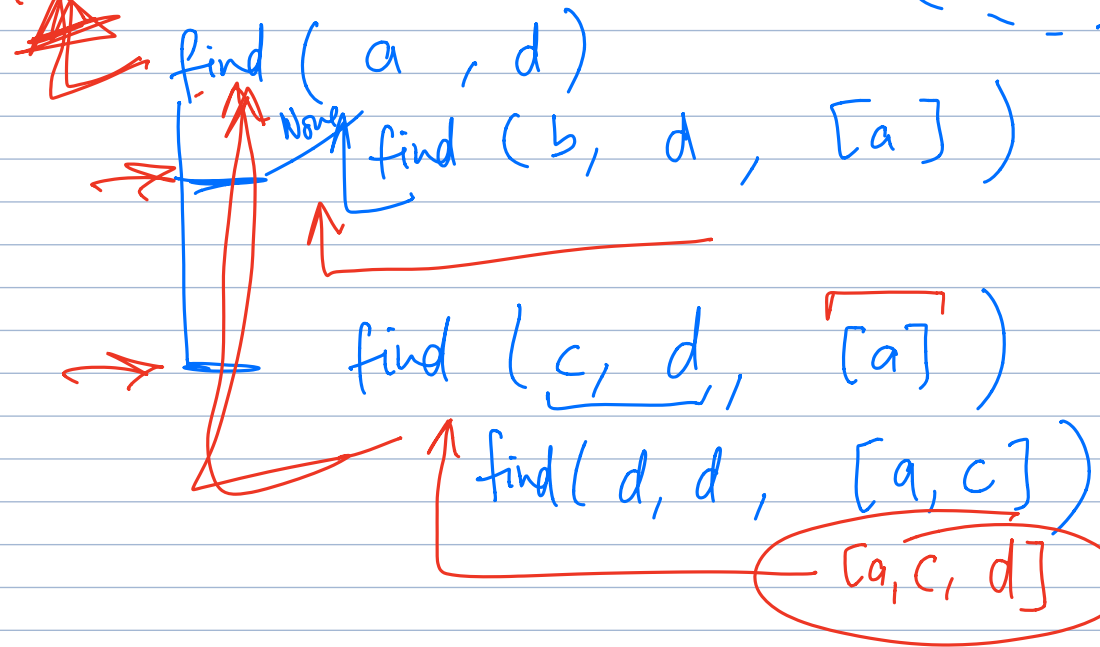 find ( a , d )
None
find ( b, d , [a] )
find ( c, d, [a] )
find( d, d, [a, c] )
[a, c, d]